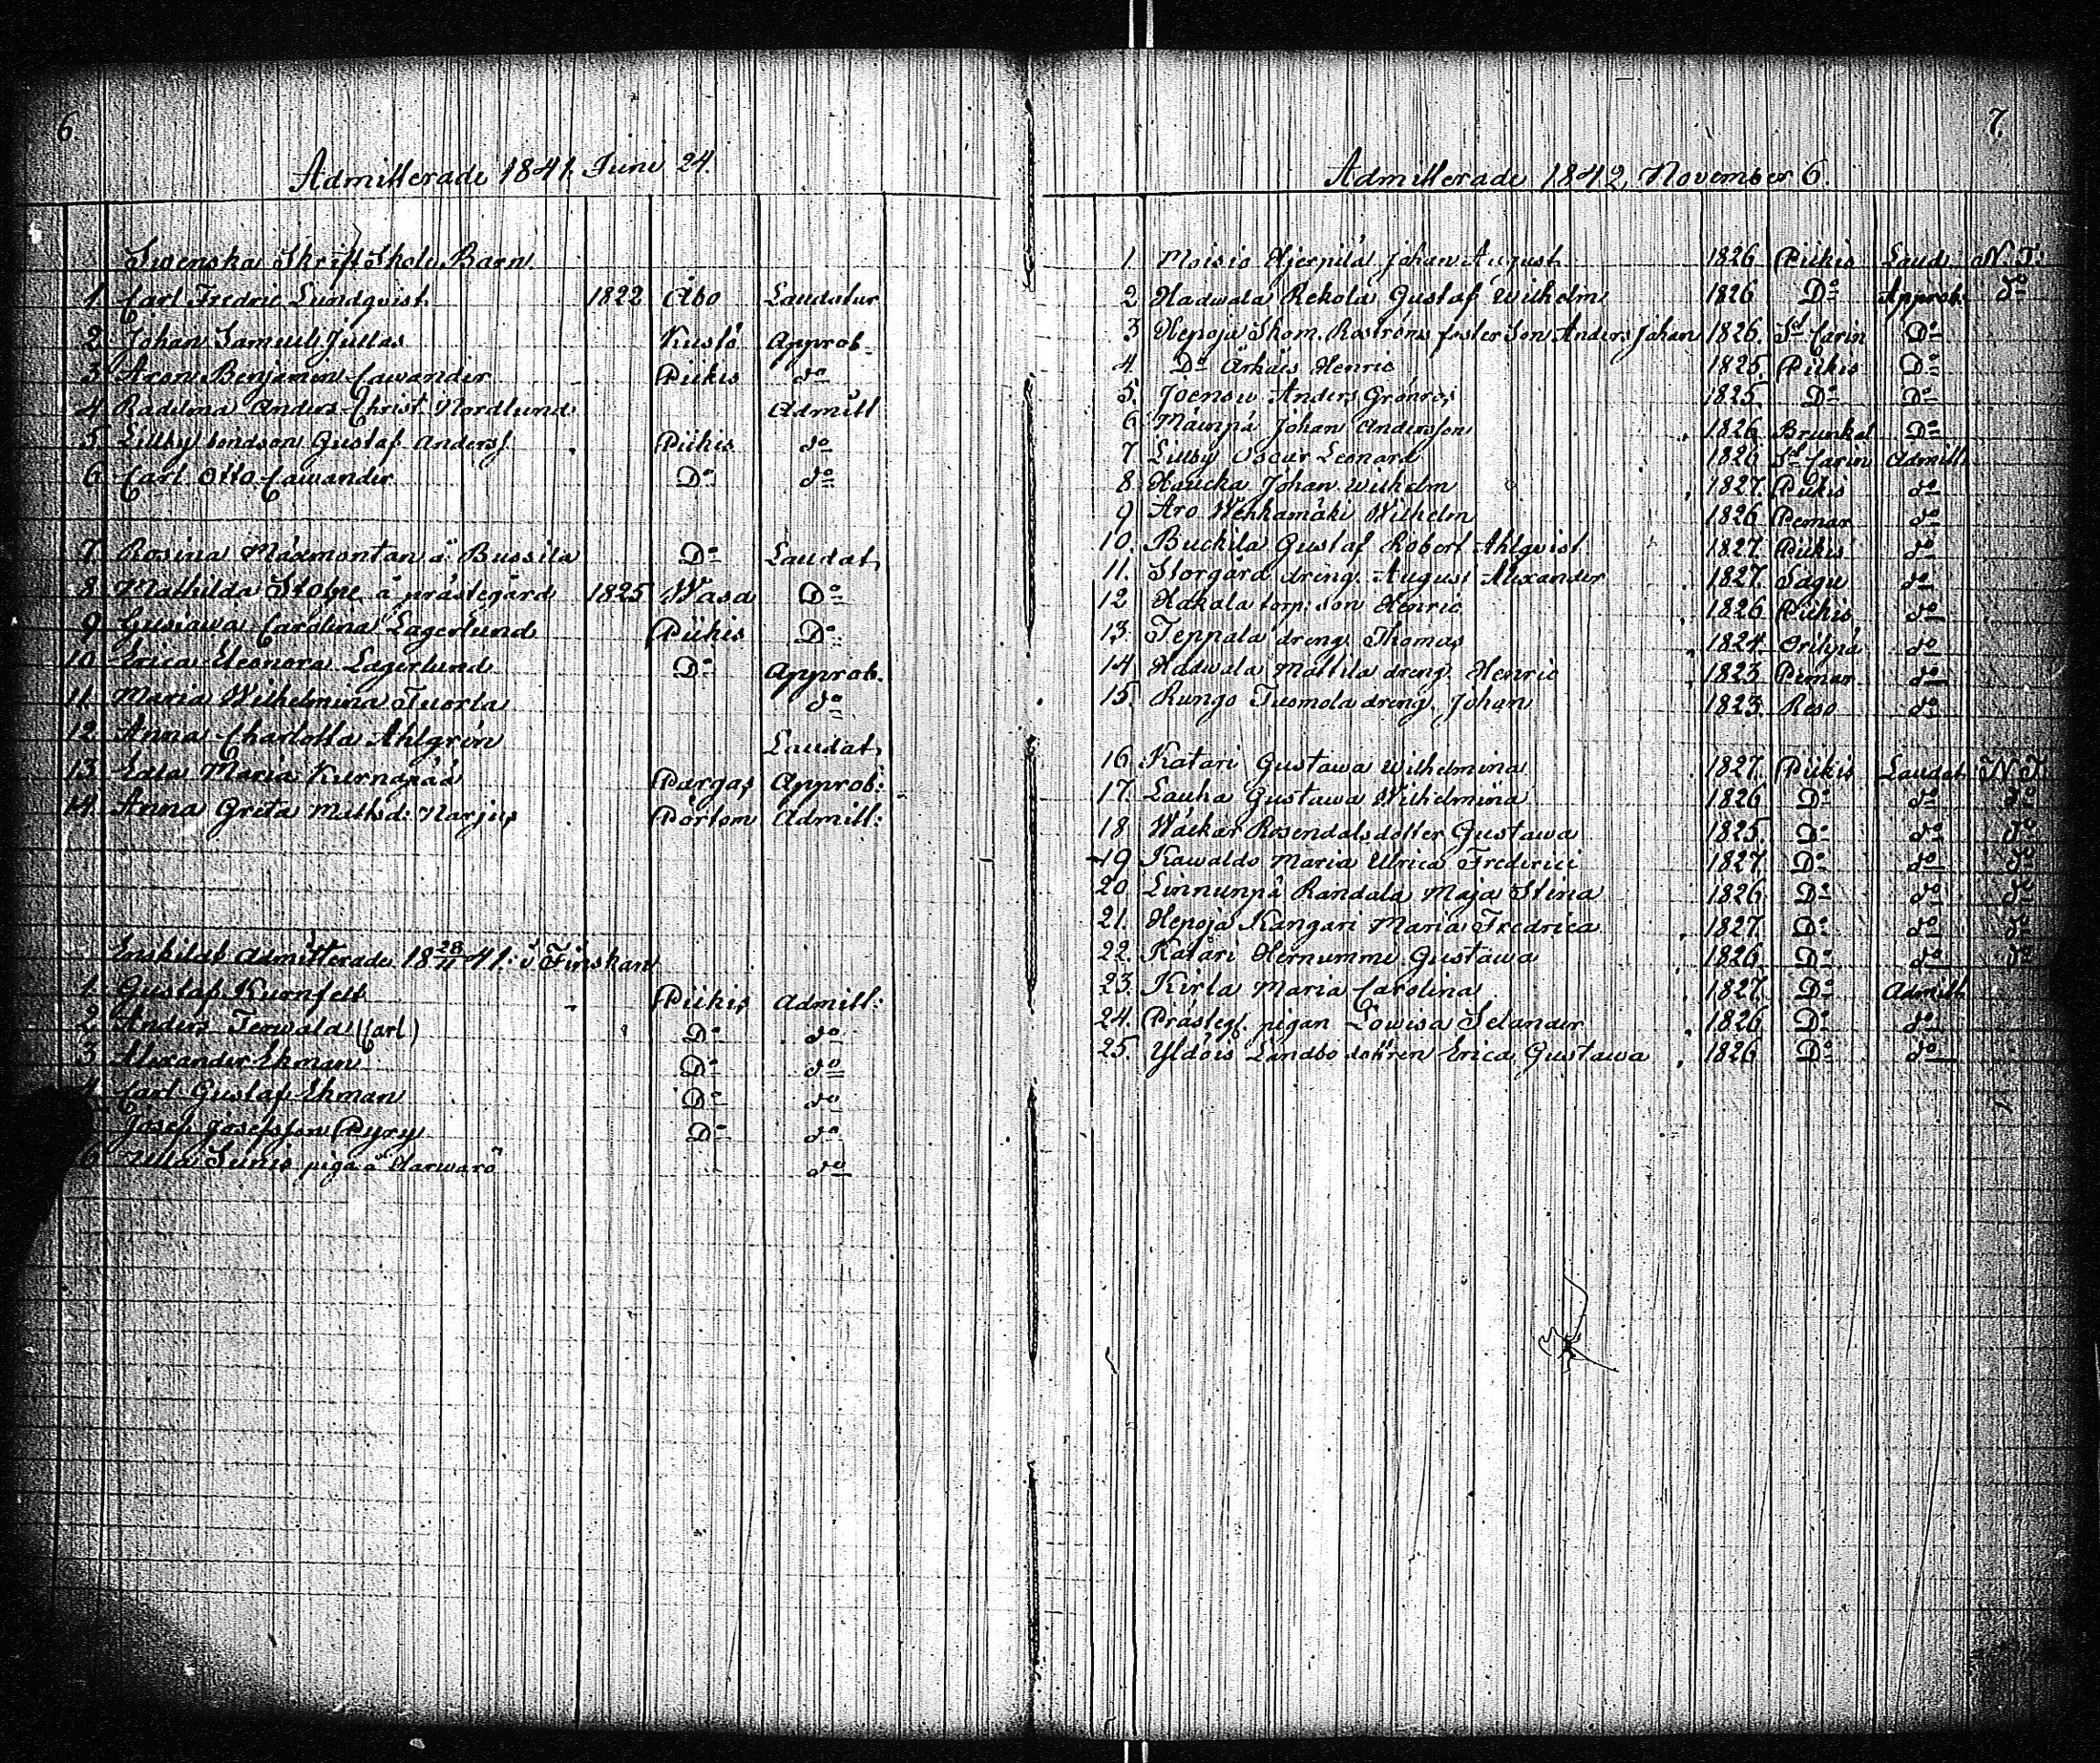 6
Admitterade 1841. Juni 24.
Swenska Skrift Skole Barn.
1. Carl Fredric Lundqvist. 1822 Åbo Laudatur
2. Johan Samuel Jullas Kustö Approb.
3. Aron Benjamin Cawander Piikis do
4. Radelma Anders Christ. Nordlund Admitt
5. Lillby bondson Gustaf Anders. Piikis do
6. Carl Otto Cawander Do do
7. Rosina Maxmontan å Bussila Do Laudat.
8. Mathilda Stolpe å prästegård 1825 Wasa Do
9. Gustawa Carolina Lagerlund Piikis Do
10. Erica Eleonora Lagerlund Do Approb.
11. Maria Wilhelmina Tuorla do
12. Anna Charlotta Ahlgrén Laudat.
13. Edla Maria Kurnapää Pargas Approb:
14. Anna Greta Mathsd: Narjus Pörtom Admitt:
Enskilat admitterade 18 28/11 41. i Finskan
1. Gustaf Kuonfelt Piikis Admitt:
2. Anders Terwala (Carl) Do do
3. Alexander Ekman Do do
4. Carl Gustaf Ekman Do do
Josef Josefsson Pyry Do do
6 Ulla Sunis piga å Harwarö do
7.
Admitterade 1842 November 6.
1. Moisio Hjerpilä Johan August 1826 Piikis Laud. N.T.
2. Hadwala Rekola Gustaf Wilhelm 1826 Do Approb. do
3. Hepoja Skom. Roströms foster Son Anders Johan 1826. St Carin Do
4. Do Arkäis Henric 1825. Piikis Do
5. Joensu Anders Grönros 1825. Do Do
6. Mäinpä Johan Andersson 1826. Brunkal Do
7. Lillby Oscar Leonard 1826 St Carin Admitt
8. Haucka Johan Wilhelm 1827. Piikis do
9. Aro Wenhamäki Wilhelm 1826 Pemar do
10. Buckila Gustaf Robert Ahlqvist 1827. Piikis do
11. Storgård dreng. August Alexander 1827. Sagu do
12. Hakala torp: son Henric 1826 Piikis do
13. Teppala dreng. Thomas 1824. Oripä do
14. Hadwala Mattila dreng. Henric 1823 Pemar do
15. Rungo Tuomola dreng. Johan 1823. Reso do
16. Katari Gustawa Wilhelmina 1827. Piikis Laudat. N.T.
17. Lauha Gustawa Wilhelmina 1826 Do do do
18. Wäckar Rosendals dotter Gustawa 1825. Do do do
19. Kawaldo Maria Ulrica Frederici 1827. Do do do
20. Linnunpä Randala Maja Stina 1826 Do do do
21. Hepoja Kangari Maria Fredrica 1827. Do do do
22. Katari Hernumme Gustawa 1826. Do do do
23. Kirla Maria Carolina 1827. Do Admitt
24. Prästeg. pigan Lowisa Selander 1826 Do do
25. Yldöis Landbo dottren Erica Gustawa 1826 Do do